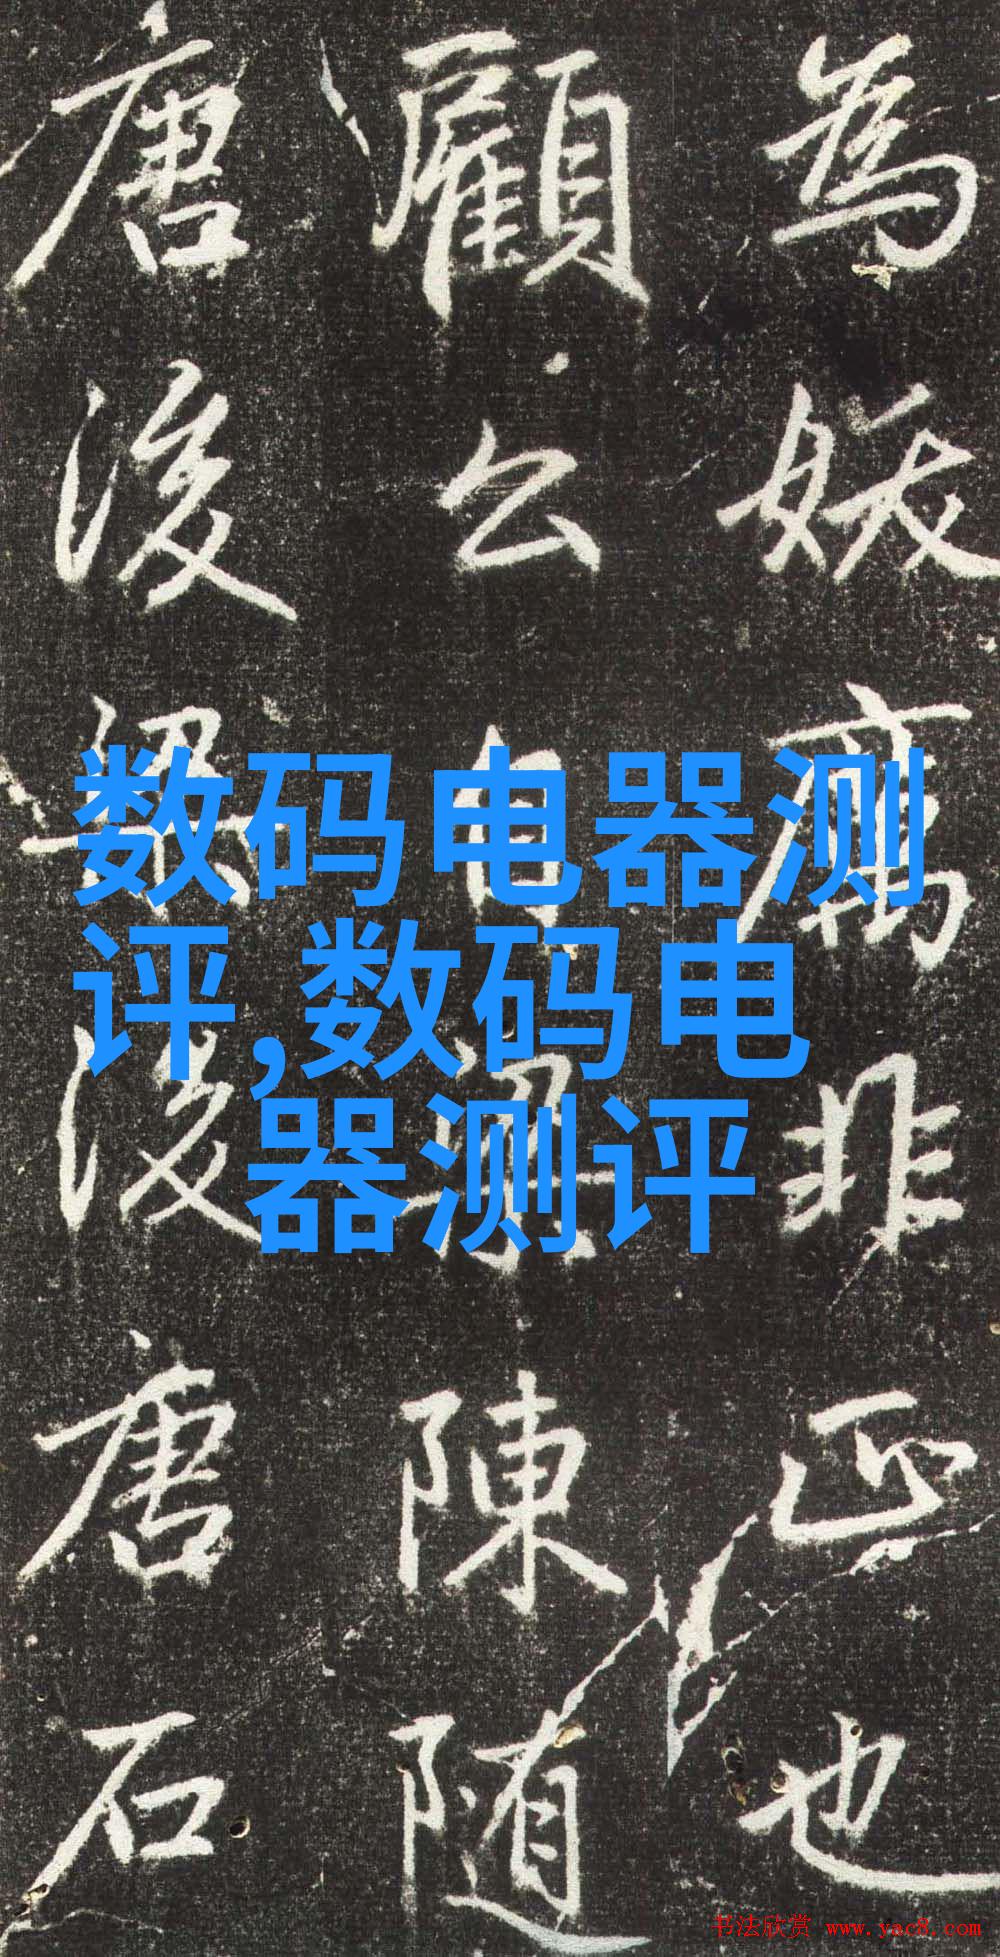 为妖属非正也
顧公自梁陳随
唐後梁後唐石
数码电器测
评,数码电
器测评
书法欣赏 www.yac8.com